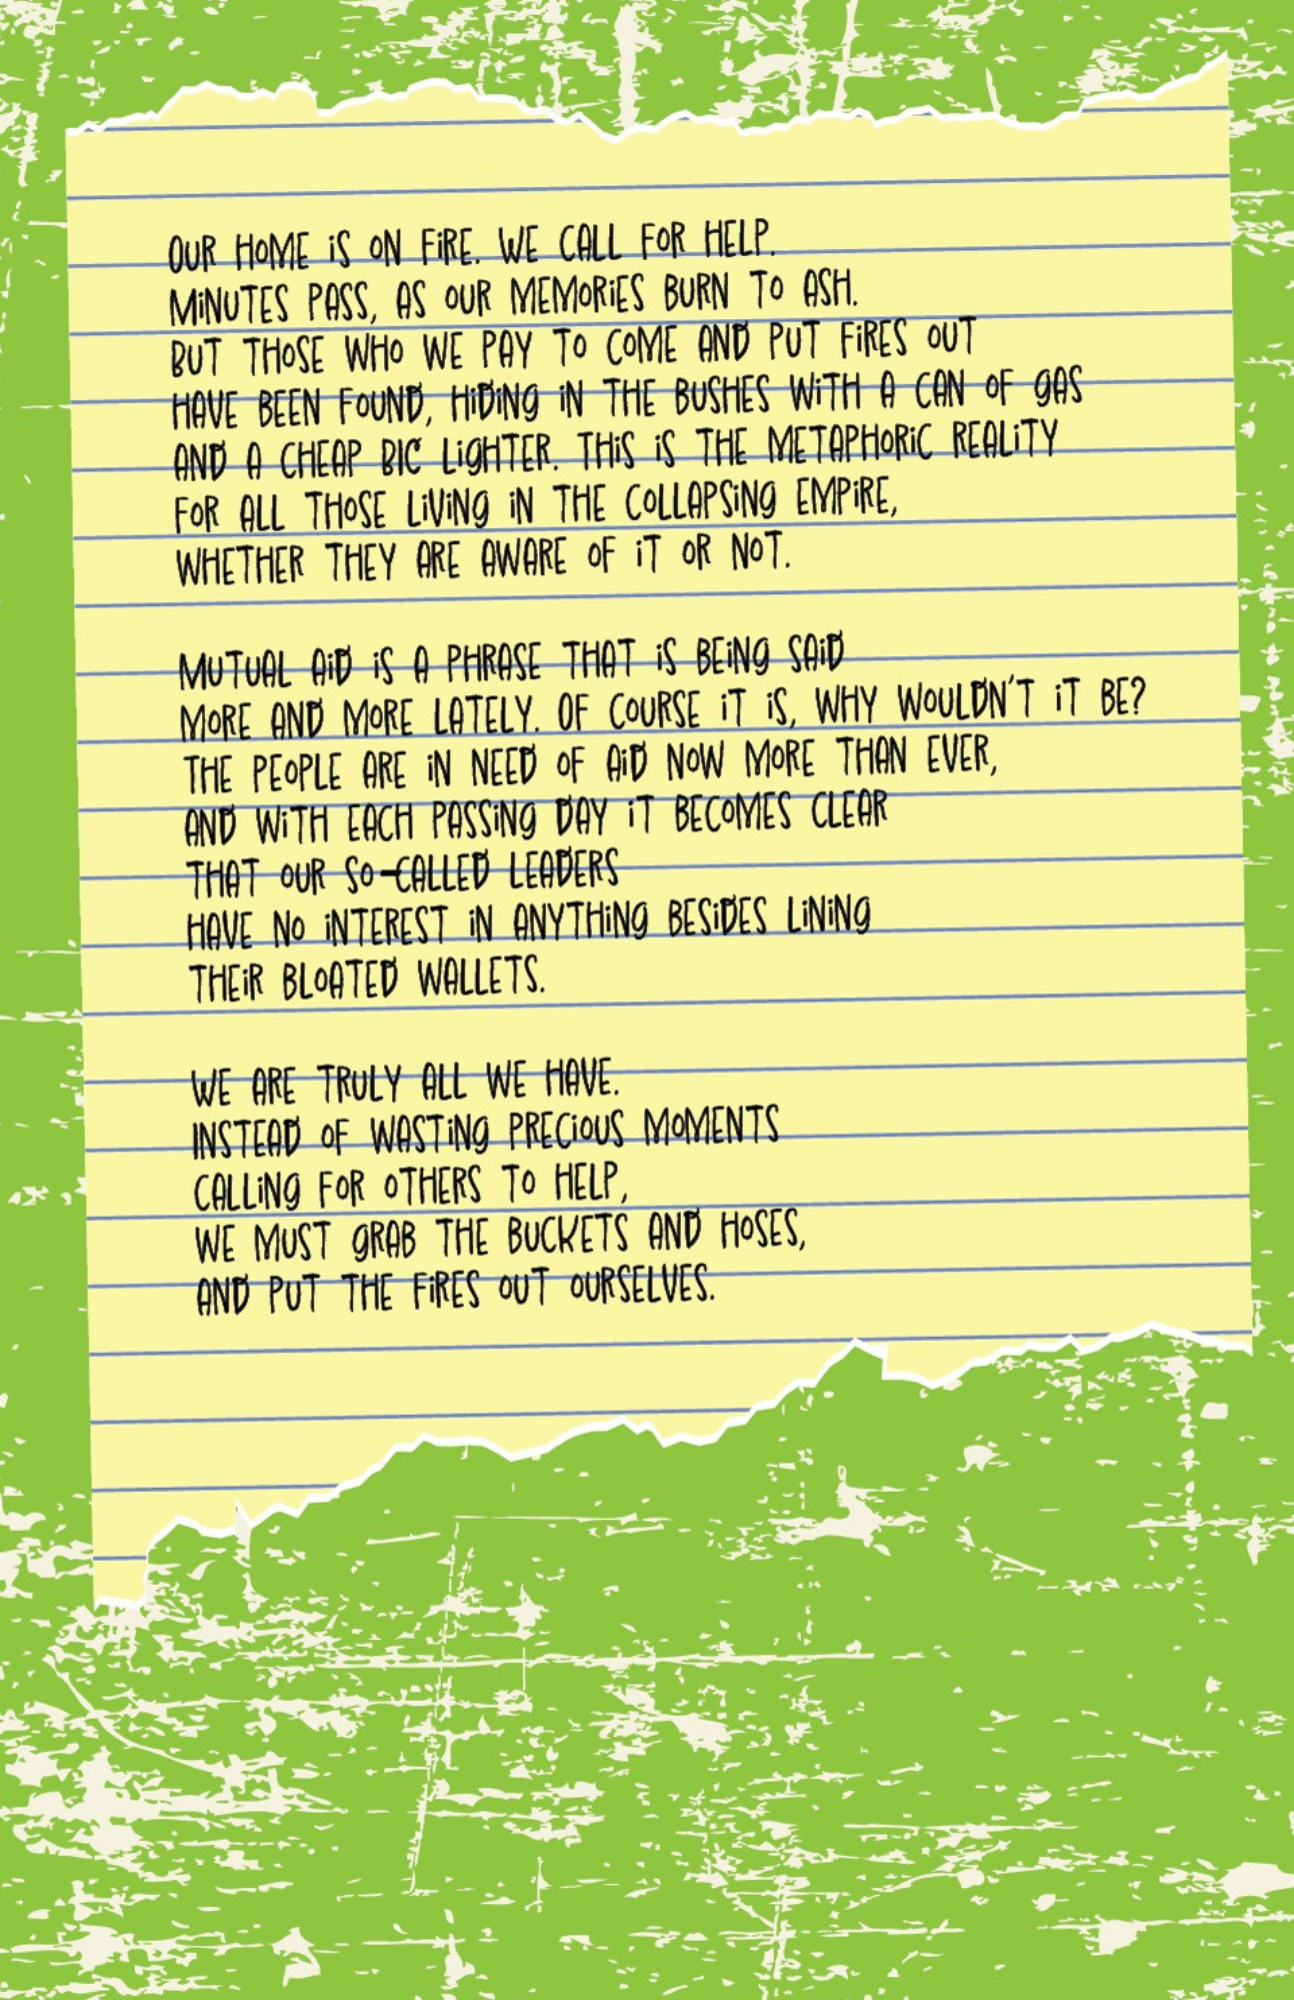 OUR HOME IS ON FIRE. WE CALL FOR HELP.
MINUTES PASS, AS OUR MEMORIES BURN TO ASH.
BUT THOSE WHO WE PAY TO COME AND PUT FIRES OUT
HAVE BEEN FOUND, HIDING IN THE BUSHES WITH A CAN OF GAS
AND A CHEAP BIC LIGHTER. THIS IS THE METAPHORIC REALITY
FOR ALL THOSE LIVING IN THE COLLAPSING EMPIRE,
WHETHER THEY ARE AWARE OF IT OR NOT.
MUTUAL AID IS A PHRASE THAT IS BEING SAID
MORE AND MORE LATELY. OF COURSE IT IS, WHY WOULDN'T IT BE?
THE PEOPLE ARE IN NEED OF AID NOW MORE THAN EVER,
AND WITH EACH PASSING DAY IT BECOMES CLEAR
THAT OUR SO-CALLED LEADERS
HAVE NO INTEREST IN ANYTHING BESIDES LINING
THEIR BLOATED WALLETS.
WE ARE TRULY ALL WE HAVE.
INSTEAD OF WASTING PRECIOUS MOMENTS
CALLING FOR OTHERS TO HELP,
WE MUST GRAB THE BUCKETS AND HOSES,
AND PUT THE FIRES OUT OURSELVES.